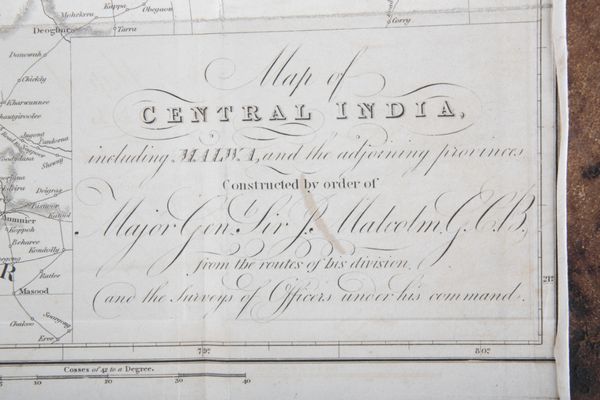 Mohrkera
Kuppa
Obegaon
Deoghur
Tarra
Gorry
Danowah
Chickly
Kharwunnee
Jugona
Pandorna
Sheroy
Deigras
Katool
Koppeh
Beharee
Kondolly
Rutlee
Masood
Chakoo
Souzgong
Eree
R
Map of
CENTRAL INDIA,
including MALWA, and the adjoining provinces
Constructed by order of
Major Gen. Sir J. Malcolm G.C.B.
from the routes of his division,
and the surveys of Officers under his command.
21°
79°
80°
Cosses of 42 to a Degree.
10 20 30 40